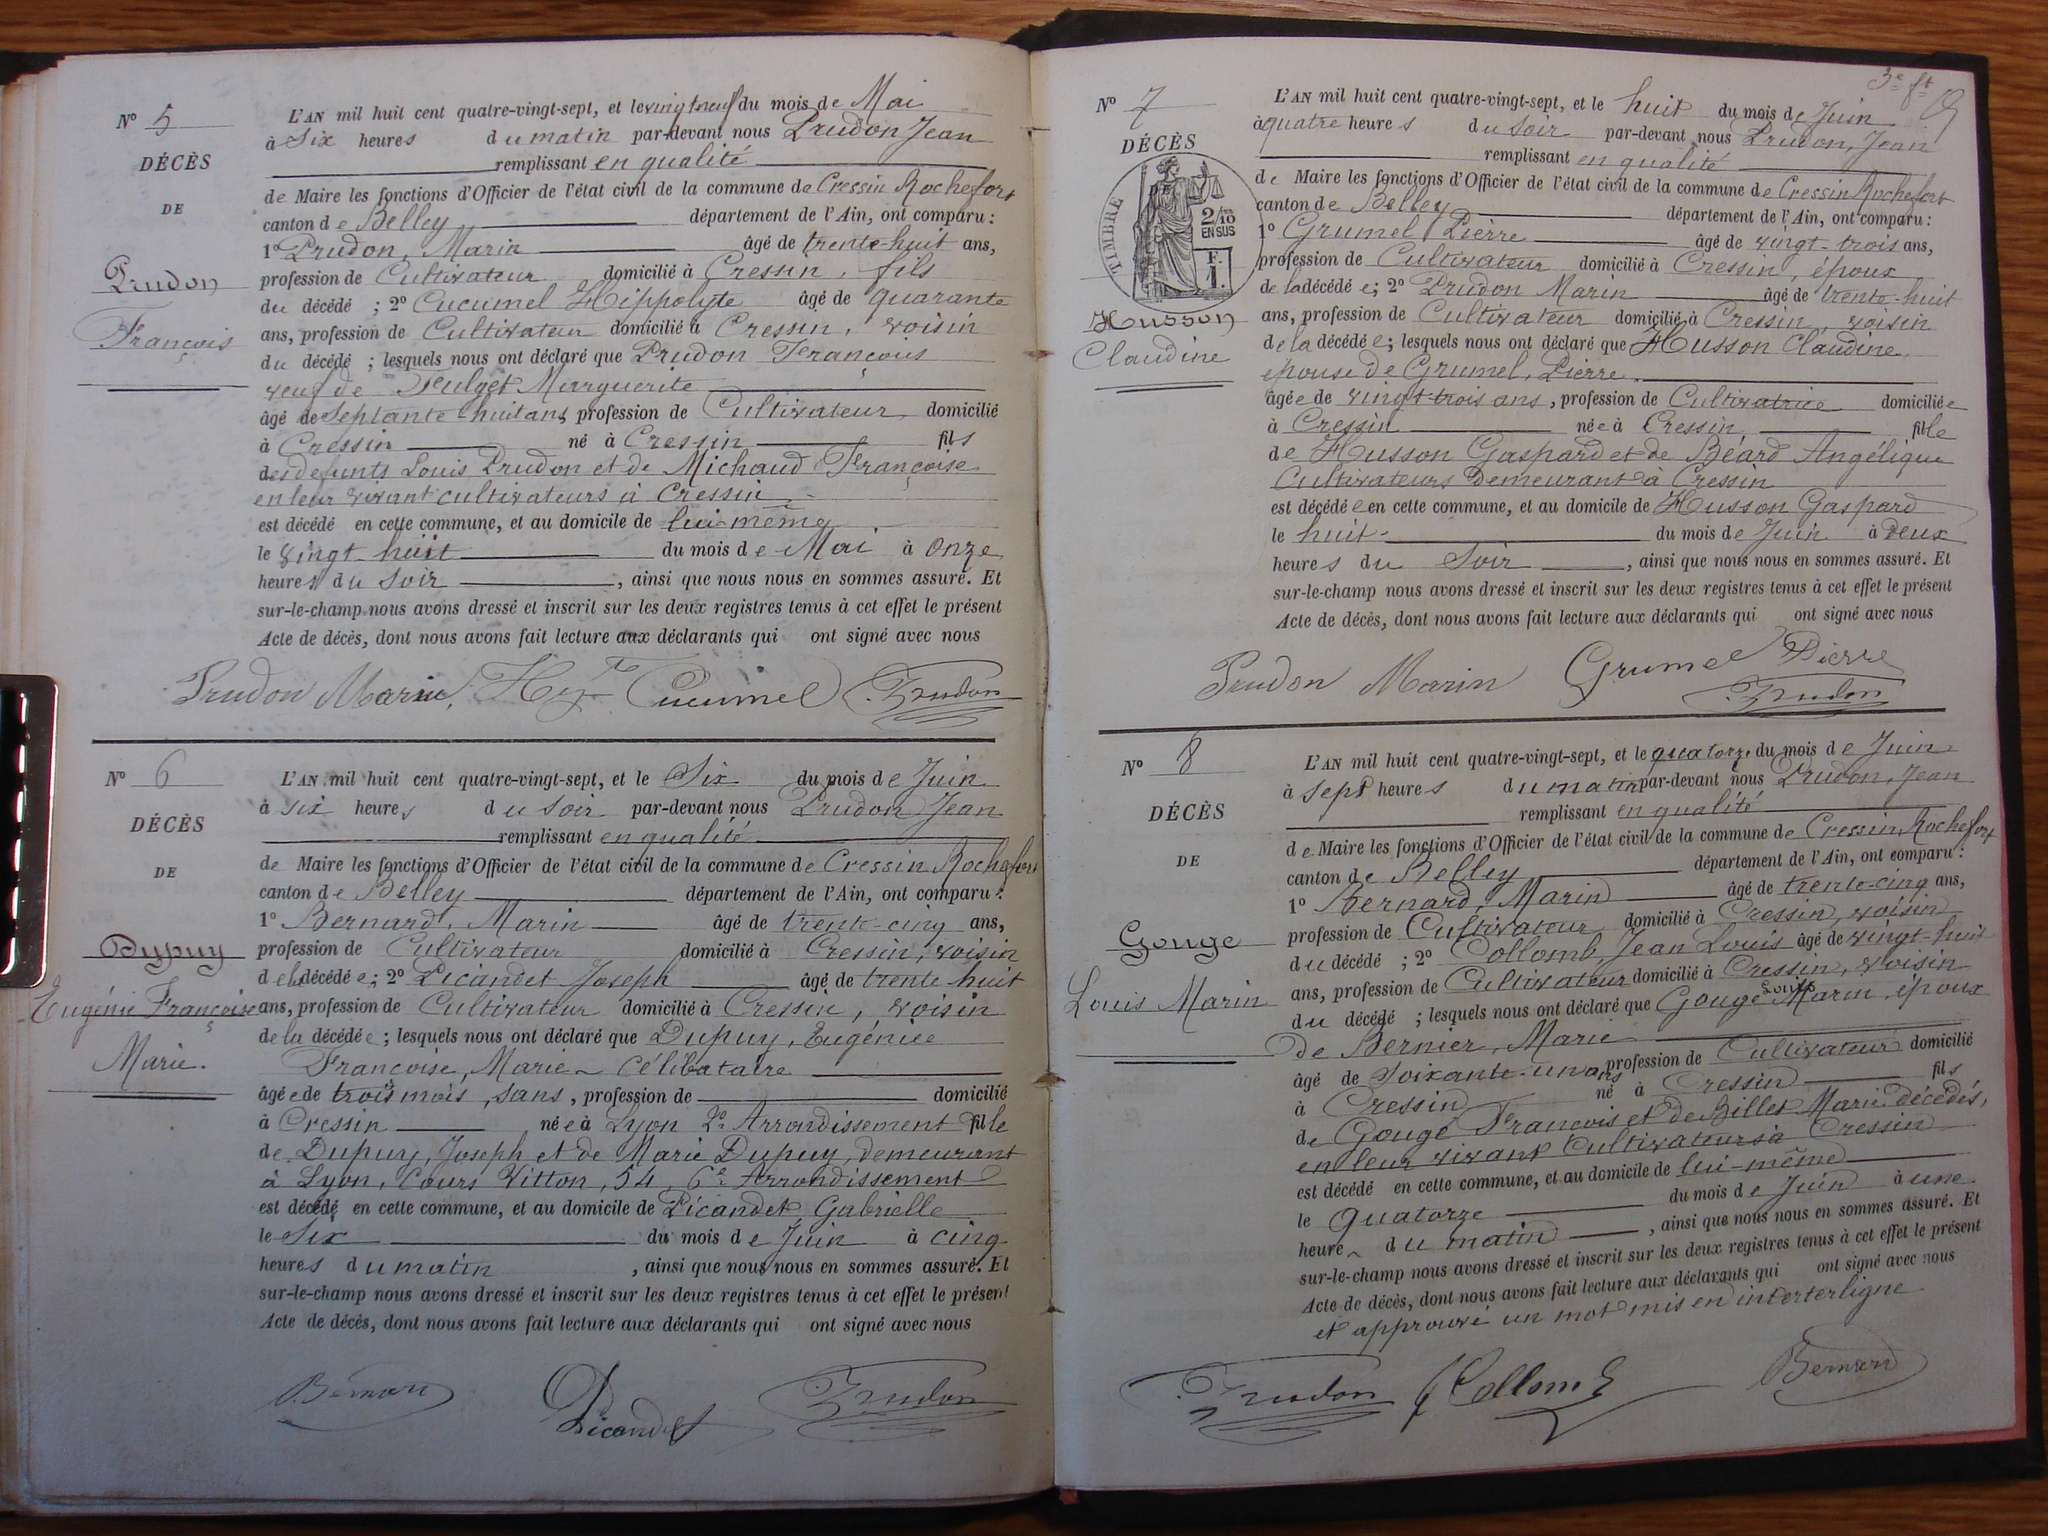 Nº 5
DÉCÈS
DE
Prudon
François
L'AN mil huit cent quatre-vingt-sept, et le vingt neuf du mois de Mai
à Six heures du matin par-devant nous Prudon Jean
remplissant en qualité
de Maire les fonctions d'Officier de l'état civil de la commune de Cressin Rochefort
canton de Belley département de l'Ain, ont comparu :
1º Prudon, Marin âgé de trente-huit ans,
profession de Cultivateur domicilié à Cressin, fils
du décédé ; 2º Cucumel Hippolyte âgé de quarante
ans, profession de Cultivateur domicilié à Cressin, voisin
du décédé ; lesquels nous ont déclaré que Prudon François
veuf de Marguerite
âgé de Septante huit ans, profession de Cultivateur domicilié
à Cressin né à Cressin fils
des defunts Louis Prudon et de Michaud Françoise
en leur vivant cultivateurs à Cressin
est décédé en cette commune, et au domicile de lui-même
le vingt huit du mois de Mai à onze
heures du Soir, ainsi que nous nous en sommes assuré. Et
sur-le-champ nous avons dressé et inscrit sur les deux registres tenus à cet effet le présent
Acte de décès, dont nous avons fait lecture aux déclarants qui ont signé avec nous
Prudon Marin, Hyte Cucumel Prudon
Nº 6
DÉCÈS
DE
Dupuy
Eugénie Françoise
Marie.
L'AN mil huit cent quatre-vingt-sept, et le Six du mois de Juin
à six heures du soir par-devant nous Prudon Jean
remplissant en qualité
de Maire les fonctions d'Officier de l'état civil de la commune de Cressin Rochefort
canton de Belley département de l'Ain, ont comparu :
1º Bernard, Marin âgé de trente-cinq ans,
profession de Cultivateur domicilié à Cressin, voisin
de la décédée ; 2º Picandet Joseph âgé de trente huit
ans, profession de Cultivateur domicilié à Cressin, voisin
de la décédée ; lesquels nous ont déclaré que Dupuy, Eugénie
Françoise, Marie célibataire
âgée de trois mois, sans, profession de domicilié
à Cressin née à Lyon 2e Arrondissement fille
de Dupuy, Joseph et de Marie Dupuy, demeurant
à Lyon, Cours Vitton, 54, 6e Arrondissement
est décédé en cette commune, et au domicile de Picandet Gabrielle
le Six du mois de Juin à cinq
heures du matin, ainsi que nous nous en sommes assuré. Et
sur-le-champ nous avons dressé et inscrit sur les deux registres tenus à cet effet le présent
Acte de décès, dont nous avons fait lecture aux déclarants qui ont signé avec nous
Bernard Picandet Prudon
3e ft
Nº 7
DÉCÈS
DE
TIMBRE
2/10
EN SUS
F.
1.
Husson
Claudine
L'AN mil huit cent quatre-vingt-sept, et le huit du mois de Juin
à quatre heures du soir par-devant nous Prudon, Jean
remplissant en qualité
de Maire les fonctions d'Officier de l'état civil de la commune de Cressin Rochefort
canton de Belley département de l'Ain, ont comparu :
1º Grumel Pierre âgé de vingt-trois ans,
profession de Cultivateur domicilié à Cressin, époux
de la décédée ; 2º Prudon Marin âgé de trente-huit
ans, profession de Cultivateur domicilié à Cressin, voisin
de la décédée ; lesquels nous ont déclaré que Husson Claudine
épouse de Grumel, Pierre
âgée de vingt-trois ans, profession de Cultivatrice domiciliée
à Cressin née à Cressin fille
de Husson Gaspard et de Béard Angélique
Cultivateurs demeurant à Cressin
est décédée en cette commune, et au domicile de Husson Gaspard
le huit du mois de Juin à Deux
heures du Soir, ainsi que nous nous en sommes assuré. Et
sur-le-champ nous avons dressé et inscrit sur les deux registres tenus à cet effet le présent
Acte de décès, dont nous avons fait lecture aux déclarants qui ont signé avec nous
Prudon Marin Grumel Pierre
Prudon
Nº 8
DÉCÈS
DE
Gouge
Louis Marin
L'AN mil huit cent quatre-vingt-sept, et le quatorze du mois de Juin
à Sept heures du matin par-devant nous Prudon, Jean
remplissant en qualité
de Maire les fonctions d'Officier de l'état civil de la commune de Cressin, Rochefort
canton de Belley département de l'Ain, ont comparu :
1º Bernard, Marin âgé de trente-cinq ans,
profession de Cultivateur domicilié à Cressin, voisin
du décédé ; 2º Collomb, Jean Louis âgé de vingt-huit
ans, profession de Cultivateur domicilié à Cressin, voisin
Louis
du décédé ; lesquels nous ont déclaré que Gouge Marin, époux
de Bernier, Marie
âgé de Soixante-un ans profession de Cultivateur domicilié
à Cressin né à Cressin fils
de Gouge François et de Billet Marie décédés,
en leur vivant Cultivateurs à Cressin
est décédé en cette commune, et au domicile de lui-même
le Quatorze du mois de Juin à une
heure du matin, ainsi que nous nous en sommes assuré. Et
sur-le-champ nous avons dressé et inscrit sur les deux registres tenus à cet effet le présent
Acte de décès, dont nous avons fait lecture aux déclarants qui ont signé avec nous
et approuvé un mot mis en interterligne
Prudon Collomb Bernard